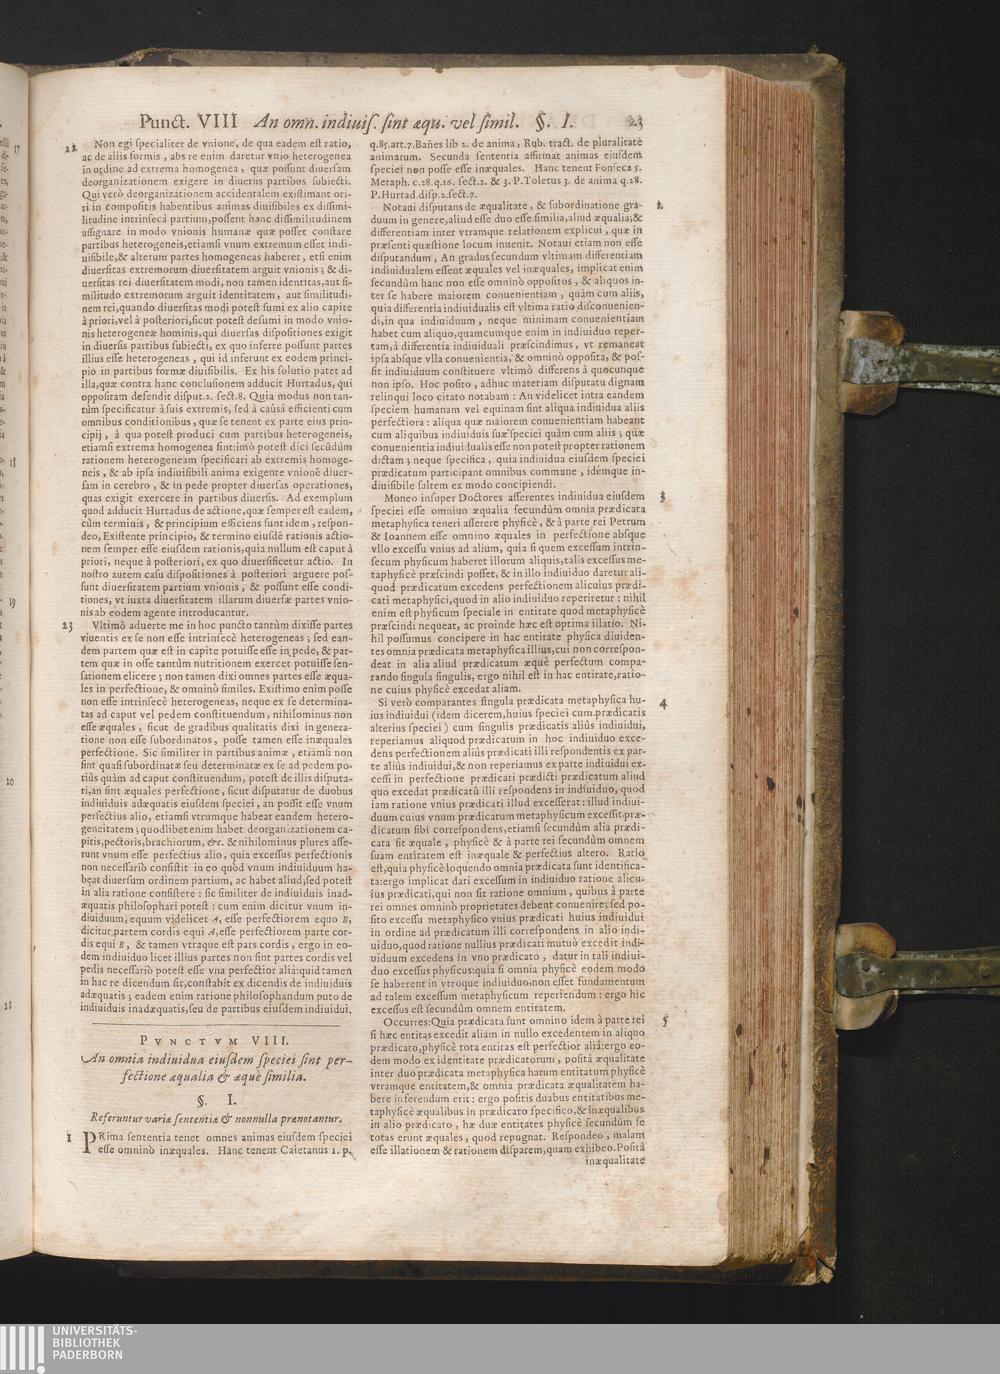 Punct. VIII An omn. indiuis. sint æqu. vel simil. §. I. 23
22 Non egi specialiter de vnione, de qua eadem est ratio,
ac de aliis formis, abs re enim daretur vnio heterogenea
in ordine ad extrema homogenea, quæ possunt diuersam
deorganizationem exigere in diuersis partibus subiecti.
Qui verò deorganizationem accidentalem existimant ori-
ri in compositis habentibus animas diuisibiles ex dissimi-
litudine intrinsecâ partium, possent hanc dissimilitudinem
assignare in modo vnionis humanæ quæ posset constare
partibus heterogeneis, etiamsi vnum extremum esset indi-
uisibile, & alterum partes homogeneas haberet, etsi enim
diuersitas extremorum diuersitatem arguit vnionis; & di-
uersitas rei diuersitatem modi, non tamen identitas, aut si-
militudo extremorum arguit identitatem, aut similitudi-
nem rei, quando diuersitas modi potest sumi ex alio capite
à priori, vel à posteriori, sicut potest desumi in modo vnio-
nis heterogeneæ hominis, qui diuersas dispositiones exigit
in diuersis partibus subiecti, ex quo inferre possunt partes
illius esse heterogeneas, qui id inferunt ex eodem princi-
pio in partibus formæ diuisibilis. Ex his solutio patet ad
illa, quæ contra hanc conclusionem adducit Hurtadus, qui
oppositam defendit disput. 2. sect. 8. Quia modus non tan-
tùm specificatur à suis extremis, sed à causâ efficienti cum
omnibus conditionibus, quæ se tenent ex parte eius prin-
cipij, à qua potest produci cum partibus heterogeneis,
etiamsi extrema homogenea sint: imò potest dici secūdùm
rationem heterogeneam specificari ab extremis homoge-
neis, & ab ipsa indiuisibili anima exigente vnionē diuer-
sam in cerebro, & in pede propter diuersas operationes,
quas exigit exercere in partibus diuersis. Ad exemplum
quod adducit Hurtadus de actione, quæ semper est eadem,
cùm terminis, & principium efficiens sunt idem, respon-
deo, Existente principio, & termino eiusdē rationis actio-
nem semper esse eiusdem rationis, quia nullum est caput à
priori, neque à posteriori, ex quo diuersificetur actio. In
nostro autem casu dispositiones à posteriori arguere pos-
sunt diuersitatem partium vnionis, & possunt esse condi-
tiones, vt iuxta diuersitatem illarum diuersæ partes vnio-
nis ab eodem agente introducantur.
23 Vltimò aduerte me in hoc puncto tantùm dixisse partes
viuentis ex se non esse intrinsecè heterogeneas; sed ean-
dem partem quæ est in capite potuisse esse in pede, & par-
tem quæ in osse tantùm nutritionem exercet potuisse sen-
sationem elicere; non tamen dixi omnes partes esse æqua-
les in perfectione, & omninò similes. Existimo enim posse
non esse intrinsecè heterogeneas, neque ex se determina-
tas ad caput vel pedem constituendum, nihilominus non
esse æquales, sicut de gradibus qualitatis dixi in genera-
tione non esse subordinatos, posse tamen esse inæquales
perfectione. Sic similiter in partibus animæ, etiamsi non
sint quasi subordinatæ seu determinatæ ex se ad pedem po-
tiùs quàm ad caput constituendum, potest de illis disputa-
ri, an sint æquales perfectione, sicut disputatur de duobus
indiuiduis adæquatis eiusdem speciei, an possit esse vnum
perfectius alio, etiamsi vtrumque habeat eandem hetero-
geneitatem; quodlibet enim habet deorganizationem ca-
pitis, pectoris, brachiorum, &c. & nihilominus plures asse-
runt vnum esse perfectius alio, quia excessus perfectionis
non necessariò consistit in eo quòd vnum indiuiduum ha-
beat diuersum ordinem partium, ac habet aliud, sed potest
in alia ratione consistere: sic similiter de indiuiduis inad-
æquatis philosophari potest: cum enim dicitur vnum in-
diuiduum, equum videlicet A, esse perfectiorem equo B,
dicitur, partem cordis equi A, esse perfectiorem parte cor-
dis equi B, & tamen vtraque est pars cordis, ergo in eo-
dem indiuiduo licet illius partes non sint partes cordis vel
pedis necessariò potest esse vna perfectior alia: quid tamen
in hac re dicendum sit, constabit ex dicendis de indiuiduis
adæquatis; eadem enim ratione philosophandum puto de
indiuiduis inadæquatis, seu de partibus eiusdem indiuidui.
PVNCTVM VIII.
An omnia indiuidua eiusdem speciei sint per-
fectione æqualia & æquè similia.
§. I.
Referuntur variæ sententiæ & nonnulla prænotantur.
1 PRima sententia tenet omnes animas eiusdem speciei
esse omninò inæquales. Hanc tenent Caietanus 1. p.
q. 85. art. 7. Bañes lib 2. de anima, Rub. tract. de pluralitate
animarum. Secunda sententia affirmat animas eiusdem
speciei non posse esse inæquales. Hanc tenent Fonseca 5.
Metaph. c. 28. q. 16. sect. 2. & 3. P. Toletus 3. de anima q. 28.
P. Hurtad. disp. 2. sect. 7.
2 Notaui disputans de æqualitate, & subordinatione gra-
duum in genere, aliud esse duo esse similia, aliud æqualia; &
differentiam inter vtramque relationem explicui, quæ in
præsenti quæstione locum inuenit. Notaui etiam non esse
disputandum, An gradus secundum vltimam differentiam
indiuidualem essent æquales vel inæquales, implicat enim
secundùm hanc non esse omninò oppositos, & aliquos in-
ter se habere maiorem conuenientiam, quàm cum aliis,
quia differentia indiuidualis est vltima ratio disconuenien-
di, in qua indiuiduum, neque minimam conuenientiam
habet cum aliquo, quamcumque enim in indiuiduo reper-
tam, à differentia indiuiduali præscindimus, vt remaneat
ipsa absque vlla conuenientia, & omninò opposita, & pos-
sit indiuiduum constituere vltimò differens à quocunque
non ipso. Hoc posito, adhuc materiam disputatu dignam
relinqui loco citato notabam: An videlicet intra eandem
speciem humanam vel equinam sint aliqua indiuidua aliis
perfectiora: aliqua quæ maiorem conuenientiam habeant
cum aliquibus indiuiduis suæ speciei quàm cum aliis; quæ
conuenientia indiuidualis esse non potest propter rationem
dictam; neque specifica, quia indiuidua eiusdem speciei
prædicatum participant omnibus commune, idémque in-
diuisibile saltem ex modo concipiendi.
3 Moneo insuper Doctores asserentes indiuidua eiusdem
speciei esse omnino æqualia secundùm omnia prædicata
metaphysica teneri asserere physicè, & à parte rei Petrum
& Ioannem esse omnino æquales in perfectione absque
vllo excessu vnius ad alium, quia si quem excessum intrin-
secum physicum haberet illorum aliquis, talis excessus me-
taphysicè præscindi posset, & in illo indiuiduo daretur ali-
quod prædicatum excedens perfectionem alicuius prædi-
cati metaphysici, quod in alio indiuiduo reperiretur: nihil
enim est physicum speciale in entitate quod metaphysicè
præscindi nequeat, ac proinde hæc est optima illatio. Ni-
hil possumus concipere in hac entitate physica diuiden-
tes omnia prædicata metaphysica illius, cui non correspon-
deat in alia aliud prædicatum æquè perfectum compa-
rando singula singulis, ergo nihil est in hac entitate, ratio-
ne cuius physicè excedat aliam.
4 Si verò comparantes singula prædicata metaphysica hu-
ius indiuidui (idem dicerem, huius speciei cum prædicatis
alterius speciei) cum singulis prædicatis aliùs indiuidui,
reperiamus aliquod prædicatum in hoc indiuiduo exce-
dens perfectionem aliùs prædicati illi respondentis ex par-
te aliùs indiuidui, & non reperiamus ex parte indiuidui ex-
cessi in perfectione prædicati prædicti prædicatum aliud
quo excedat prædicatū illi respondens in indiuiduo, quod
iam ratione vnius prædicati illud excesserat: illud indiui-
duum cuius vnum prædicatum metaphysicum excessit præ-
dicatum sibi correspondens, etiamsi secundùm alia prædi-
cata sit æquale, physicè & à parte rei secundùm omnem
suam entitatem est inæquale & perfectius altero. Ratio
est, quia physicè loquendo omnia prædicata sunt identifica-
ta: ergo implicat dari excessum in indiuiduo ratione alicu-
ius prædicati, qui non sit ratione omnium, quibus à parte
rei omnes omninò proprietates debent conuenire; sed po-
sito excessu metaphysico vnius prædicati huius indiuidui
in ordine ad prædicatum illi correspondens in alio indi-
uiduo, quod ratione nullius prædicati mutuò excedit indi-
uiduum excedens in vno prædicato, datur in tali indiui-
duo excessus physicus: quia si omnia physicè eodem modo
se haberent in vtroque indiuiduo, non esset fundamentum
ad talem excessum metaphysicum reperiendum: ergo hic
excessus est secundùm omnem entitatem.
5 Occurres: Quia prædicata sunt omnino idem à parte rei
si hæc entitas excedit aliam in nullo excedentem in aliquo
prædicato, physicè tota entitas est perfectior aliâ: ergo eo-
dem modo ex identitate prædicatorum, positâ æqualitate
inter duo prædicata metaphysica harum entitatum physicè
vtramque entitatem, & omnia prædicata æqualitatem ha-
bere inferendum erit: ergo positis duabus entitatibus me-
taphysicè æqualibus in prædicato specifico, & inæqualibus
in alio prædicato, hæ duæ entitates physicè secundùm se
totas erunt æquales, quod repugnat. Respondeo, malam
esse illationem & rationem disparem, quam exhibeo. Positâ
inæqualitate
17
18
19
20
21
UNIVERSITÄTS-
BIBLIOTHEK
PADERBORN